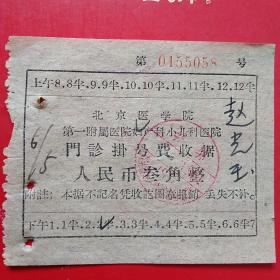 第 0155058 号
上午8.8半.9.9半.10.10半.11.11半.12.12半
北京医学院
第一附属医院妇产科小儿科医院
門診掛号費收据
人民币叁角整
附註：本据不記名凭收訖图章報銷 丢失不补。
下午1.1半.2.2半.3.3半.4.4半.5.5半.6.6半7
6/5
赵
玉